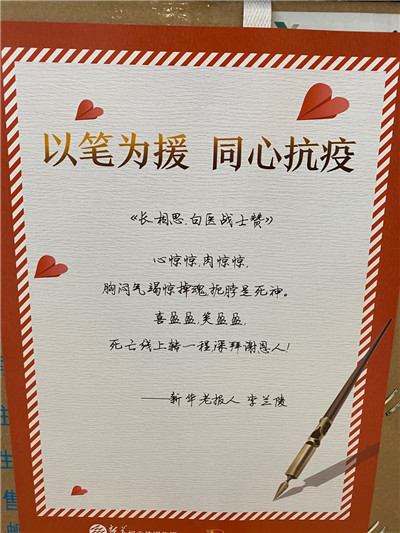 以笔为援 同心抗疫
《长相思.白医战士赞》
心惊惊,肉惊惊,
胸闷气竭惊魂,扼脖是死神。
喜盈盈,笑盈盈,
死亡线上转一程深拜谢恩人!
——新华老报人 李兰陵
生
售